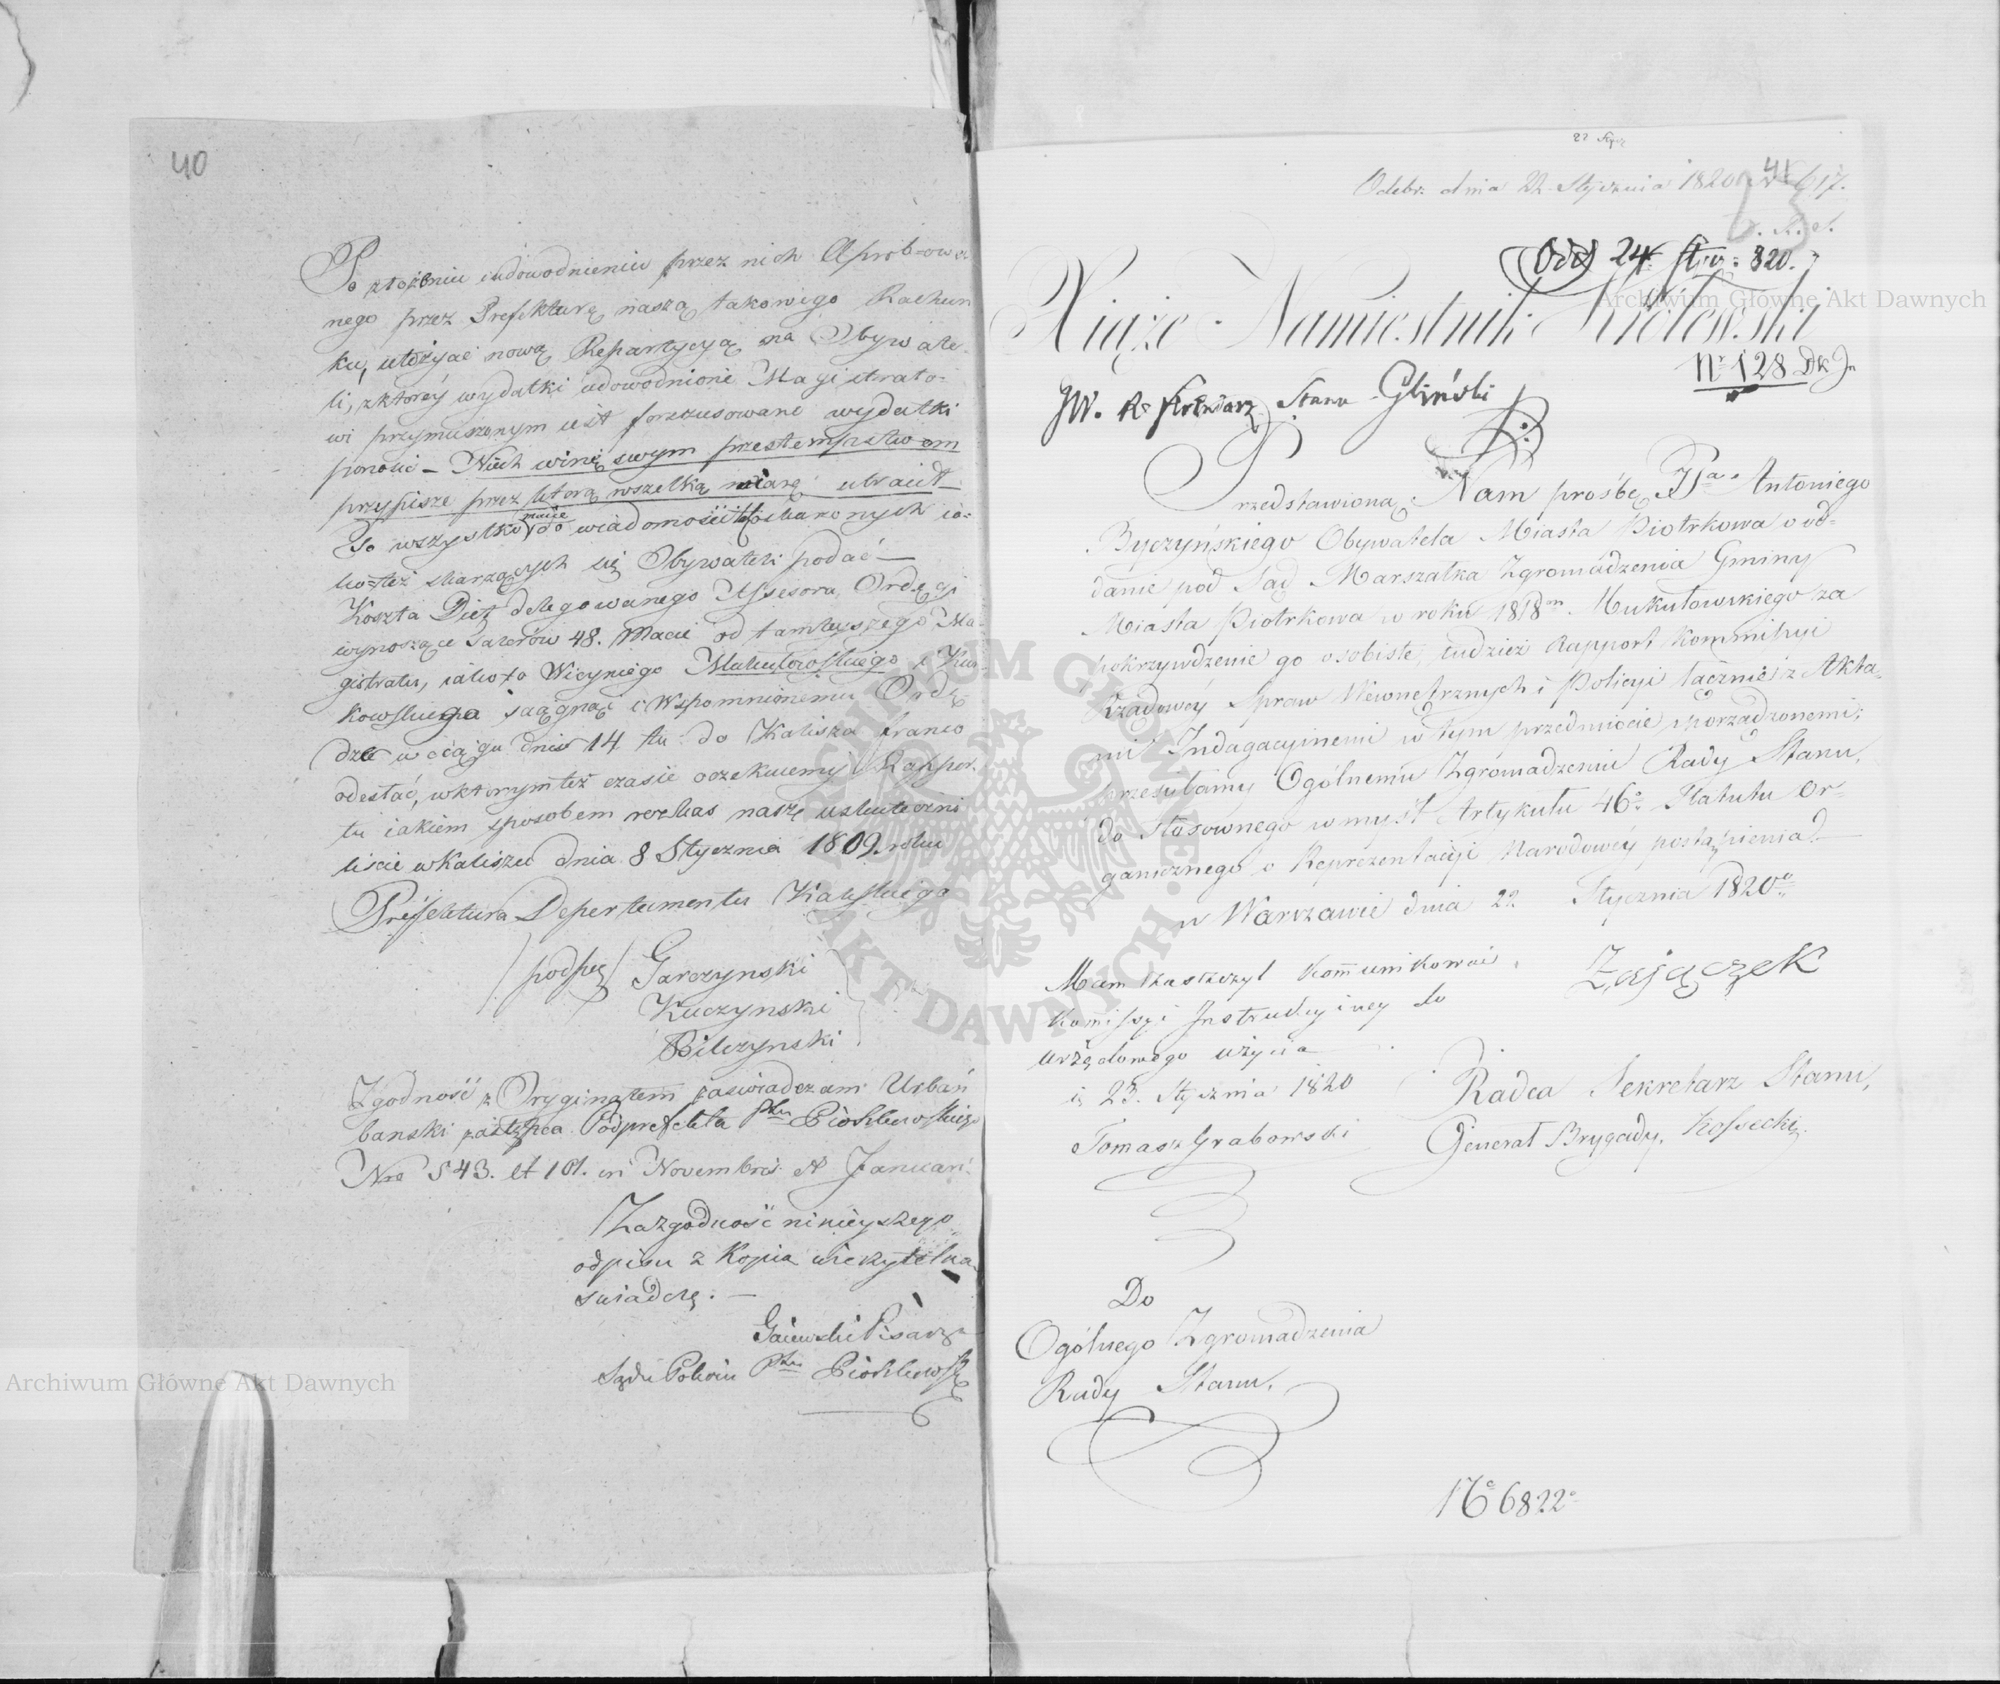 40
Po złożeniu i udowodnieniu przez nich Aprobowa
nego przez Prefekturę naszą takowego Rachun
ku, ułożyać nową Repartycyą na Obywate-
li, z ktorey wydatki udowodnione Magistrato-
wi przymuszonym iest forszusowane wydatki
ponosić – Niech winię swym przestempstwom
przypisze przez ktorą wszelką wiarę utracił
To wszystko macie do wiadomości ia-
koteż skarzących się Obywateli podać –
Koszta Diet delegowanego Assesora Ordęgi
wynoszące Talerów 48. Macie od tamteyszego Ma-
gistratu, iakoto Wicyniego Mukułowskiego i Kur-
kowskiego sciągnąć i Wspomnionemu Ordę
dze w ciągu dniu 14 tu do Kalisza franco
odesłać, w ktorym też czasie oczekuiemy Rappor-
tu iakiem sposobem rozkaz nasz uskuteczni
liście w Kaliszu dnia 8 Stycznia 1809. roku
Prefektura Departamentu Kaliskiego
(podpis) Garczynski
Kuczynski
Bilczynski
Zgodność z Oryginałem zaswiadczam Urbań
banski zastępca Podprefekta Ptu Piotrkowskiego
Nro 543. et 101. in Novembris et Januari
Za zgodność ninieyszego
odpisu z Kopia wierzytelna
swiadczę. –
Gaiewski Pisarz
Sądu Pokoiu Ptu Piotrkowsk
22 Stycz
Odebr. dnia 22 Stycznia 1820 N 617.
41
Odd 24 Stu: 820.
Xiąże Namiestnik Królewski
No 128 Dk Jn
JW. Referendarz Stanu Gliński
Przedstawioną Nam prośbę Pa. Antoniego
Byczyńskiego Obywatela Miasta Piotrkowa o od-
danie pod Sąd Marszałka Zgromadzenia Gminy
Miasta Piotrkowa w roku 1818m. Mukułowskiego za
pokrzywdzenie go osobiste, tudzież Rapport Kommissyi
Rządowéy Spraw Wewnętrznych i Policyi łącznie z Akta-
mi Indagacyinemi w tym przedmiocie sporządzonemi,
przesyłamy Ogólnemu Zgromadzeniu Rady Stanu,
do stosownego w myśl Artykułu 46o Statutu Or-
ganicznego o Reprezentacyi Narodowéy postąpienia. –
w Warszawie dnia 22 Stycznia 1820o
Zajączek
Mam zaszczyt Kommunikować
Kommissyi Instrukcyiney do
urzędowego użycia
d. 23. Stycznia 1820
Tomasz Grabowski
Radca Sekretarz Stanu,
Generał Brygady, Kossecki
Do
Ogólnego Zgromadzenia
Rady Stanu.
No 6822
Archiwum Główne Akt Dawnych
Archiwum Główne Akt Dawnych
ARCHIWUM GŁÓWNE AKT DAWNYCH